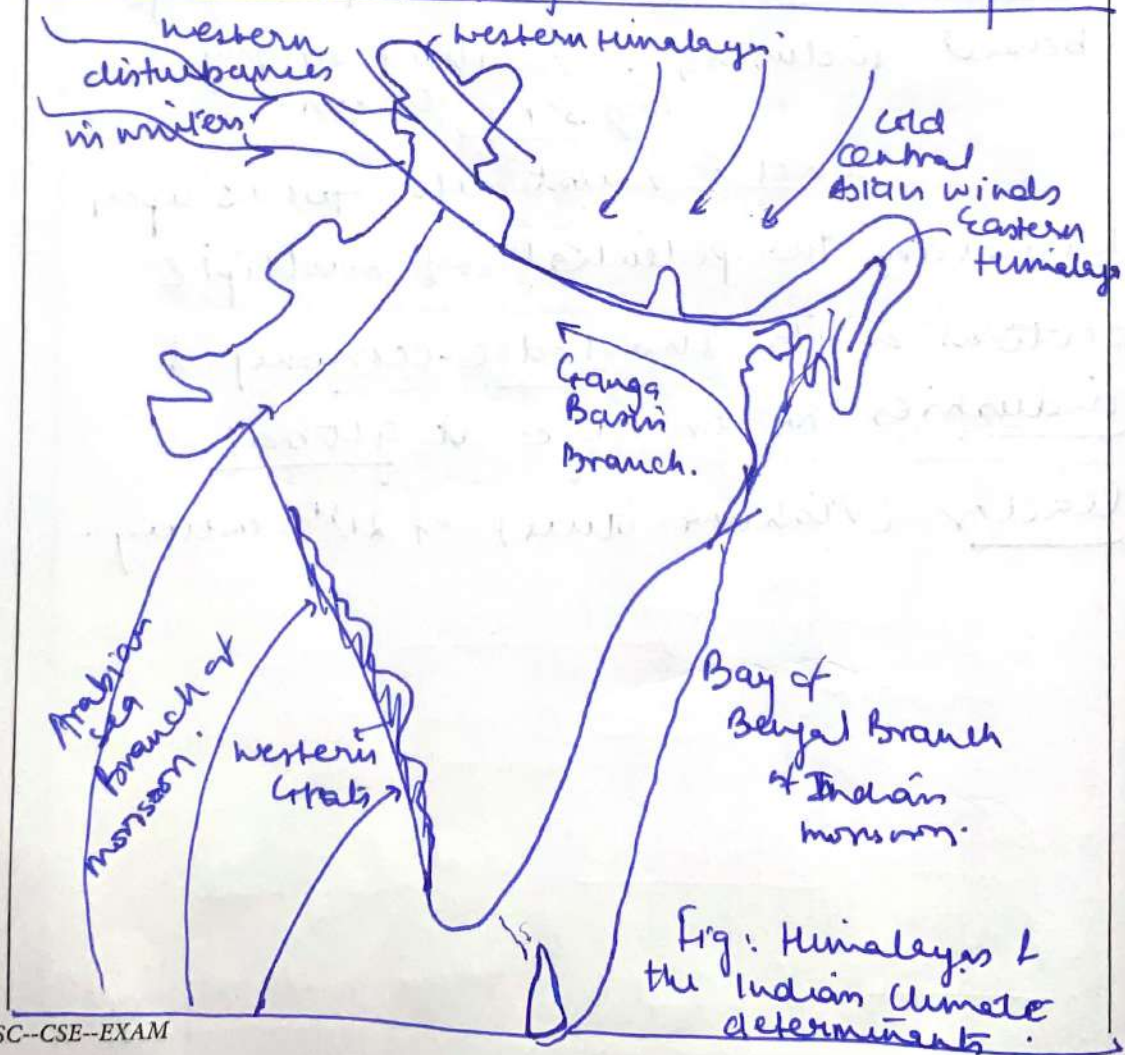 western
disturbances
in winters
western Himalayas
Cold
Central
Asian winds
Eastern
Himalaya
Ganga
Basin
Branch.
Arabian
Sea
Branch of
monsoon.
western
Ghats
Bay of
Bengal Branch
of Indian
monsoon.
Fig: Himalayas &
the Indian Climate
determinants.
SC--CSE--EXAM